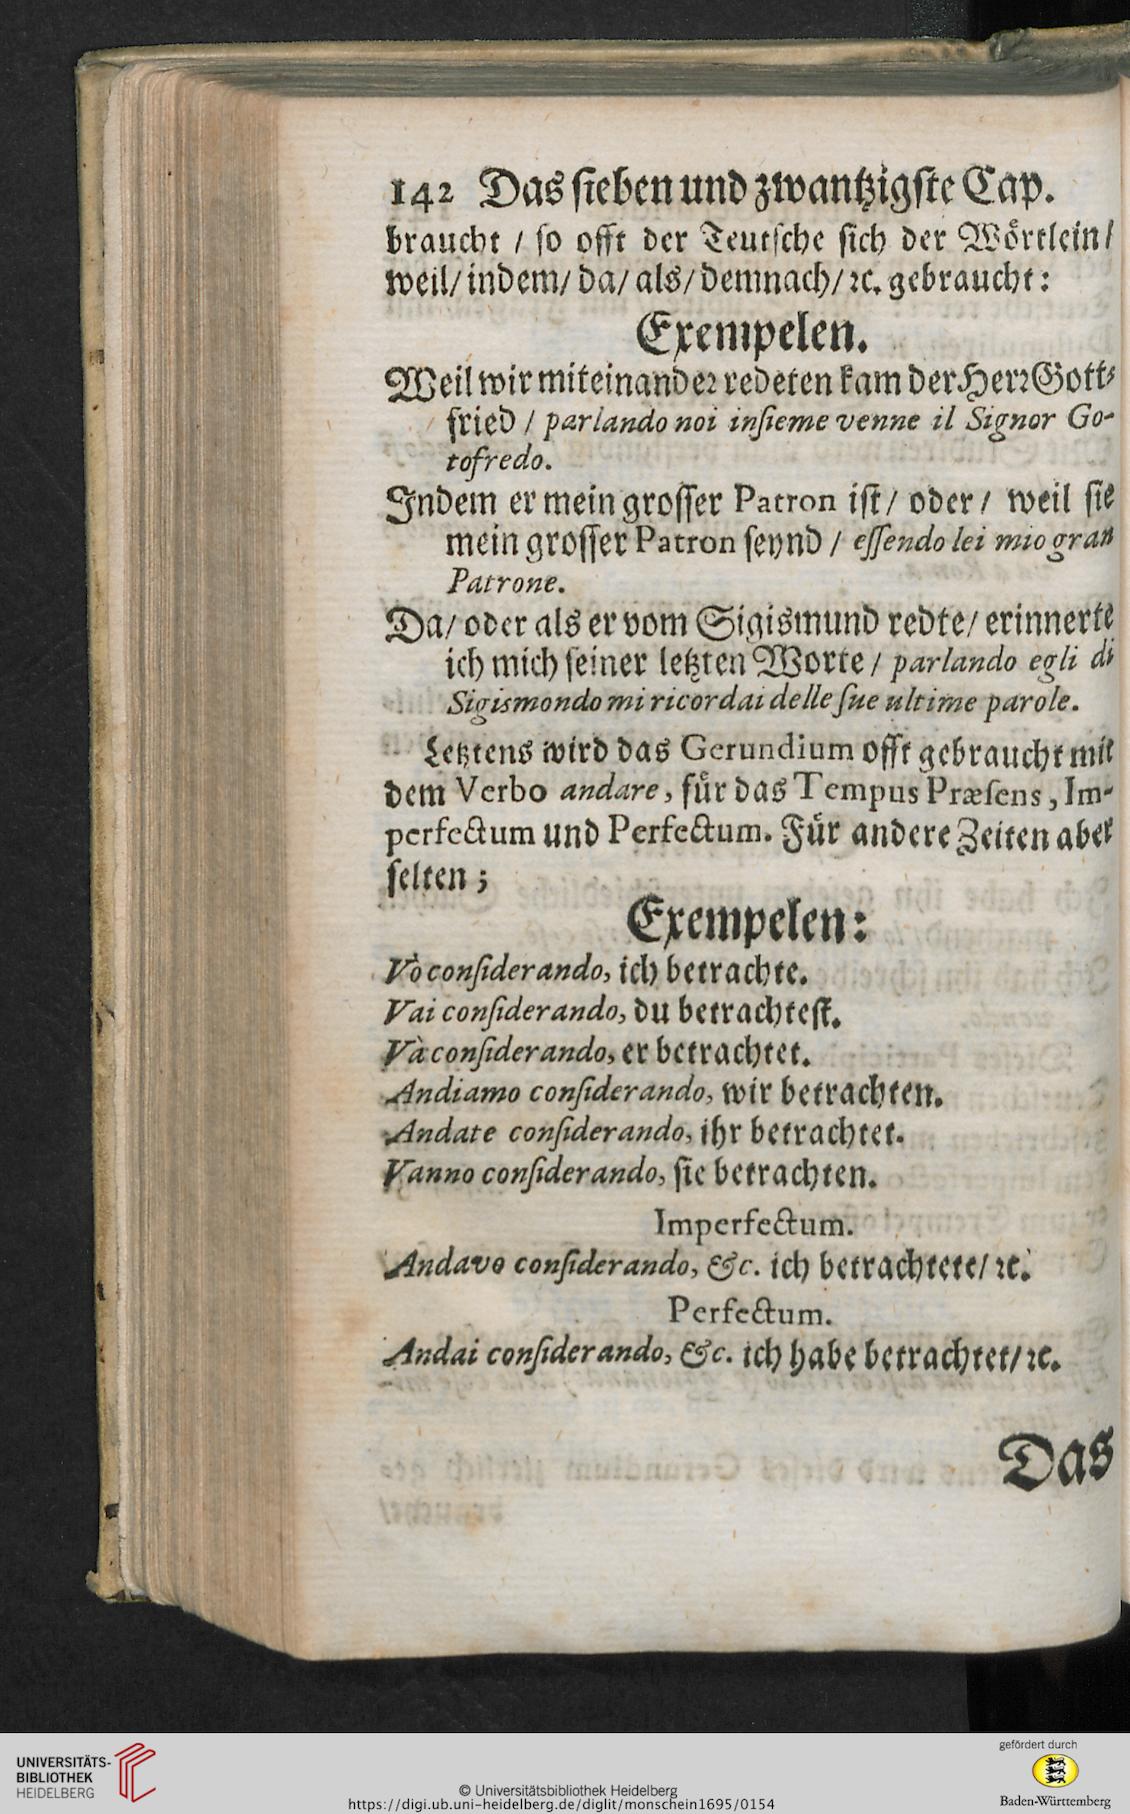 142 Das sieben und zwantzigste Cap.
braucht / so offt der Teutsche sich der Wörtlein/
weil/ indem/ da/ als/ demnach/ ꝛc. gebraucht:
Exempelen.
Weil wir miteinander redeten kam der Herr Gott-
fried / parlando noi inſieme venne il Signor Go-
tofredo.
Indem er mein grosser Patron ist/ oder/ weil sie
mein grosser Patron seynd / eſſendo lei mio gran
Patrone.
Da/ oder als er vom Sigismund redte/ erinnerte
ich mich seiner letzten Worte / parlando egli di
Sigismondo mi ricordai delle ſue ultime parole.
Letztens wird das Gerundium offt gebraucht mit
dem Verbo andare, für das Tempus Præſens, Im-
perfectum und Perfectum. Für andere Zeiten aber
selten;
Exempelen:
Vò conſiderando, ich betrachte.
Vai conſiderando, du betrachtest.
Và conſiderando, er betrachtet.
Andiamo conſiderando, wir betrachten.
Andate conſiderando, ihr betrachtet.
Vanno conſiderando, sie betrachten.
Imperfectum.
Andavo conſiderando, &c. ich betrachtete/ ꝛc.
Perfectum.
Andai conſiderando, &c. ich habe betrachtet/ ꝛc.
Das
UNIVERSITÄTS-
BIBLIOTHEK
HEIDELBERG
© Universitätsbibliothek Heidelberg
https://digi.ub.uni-heidelberg.de/diglit/monschein1695/0154
gefördert durch
Baden-Württemberg